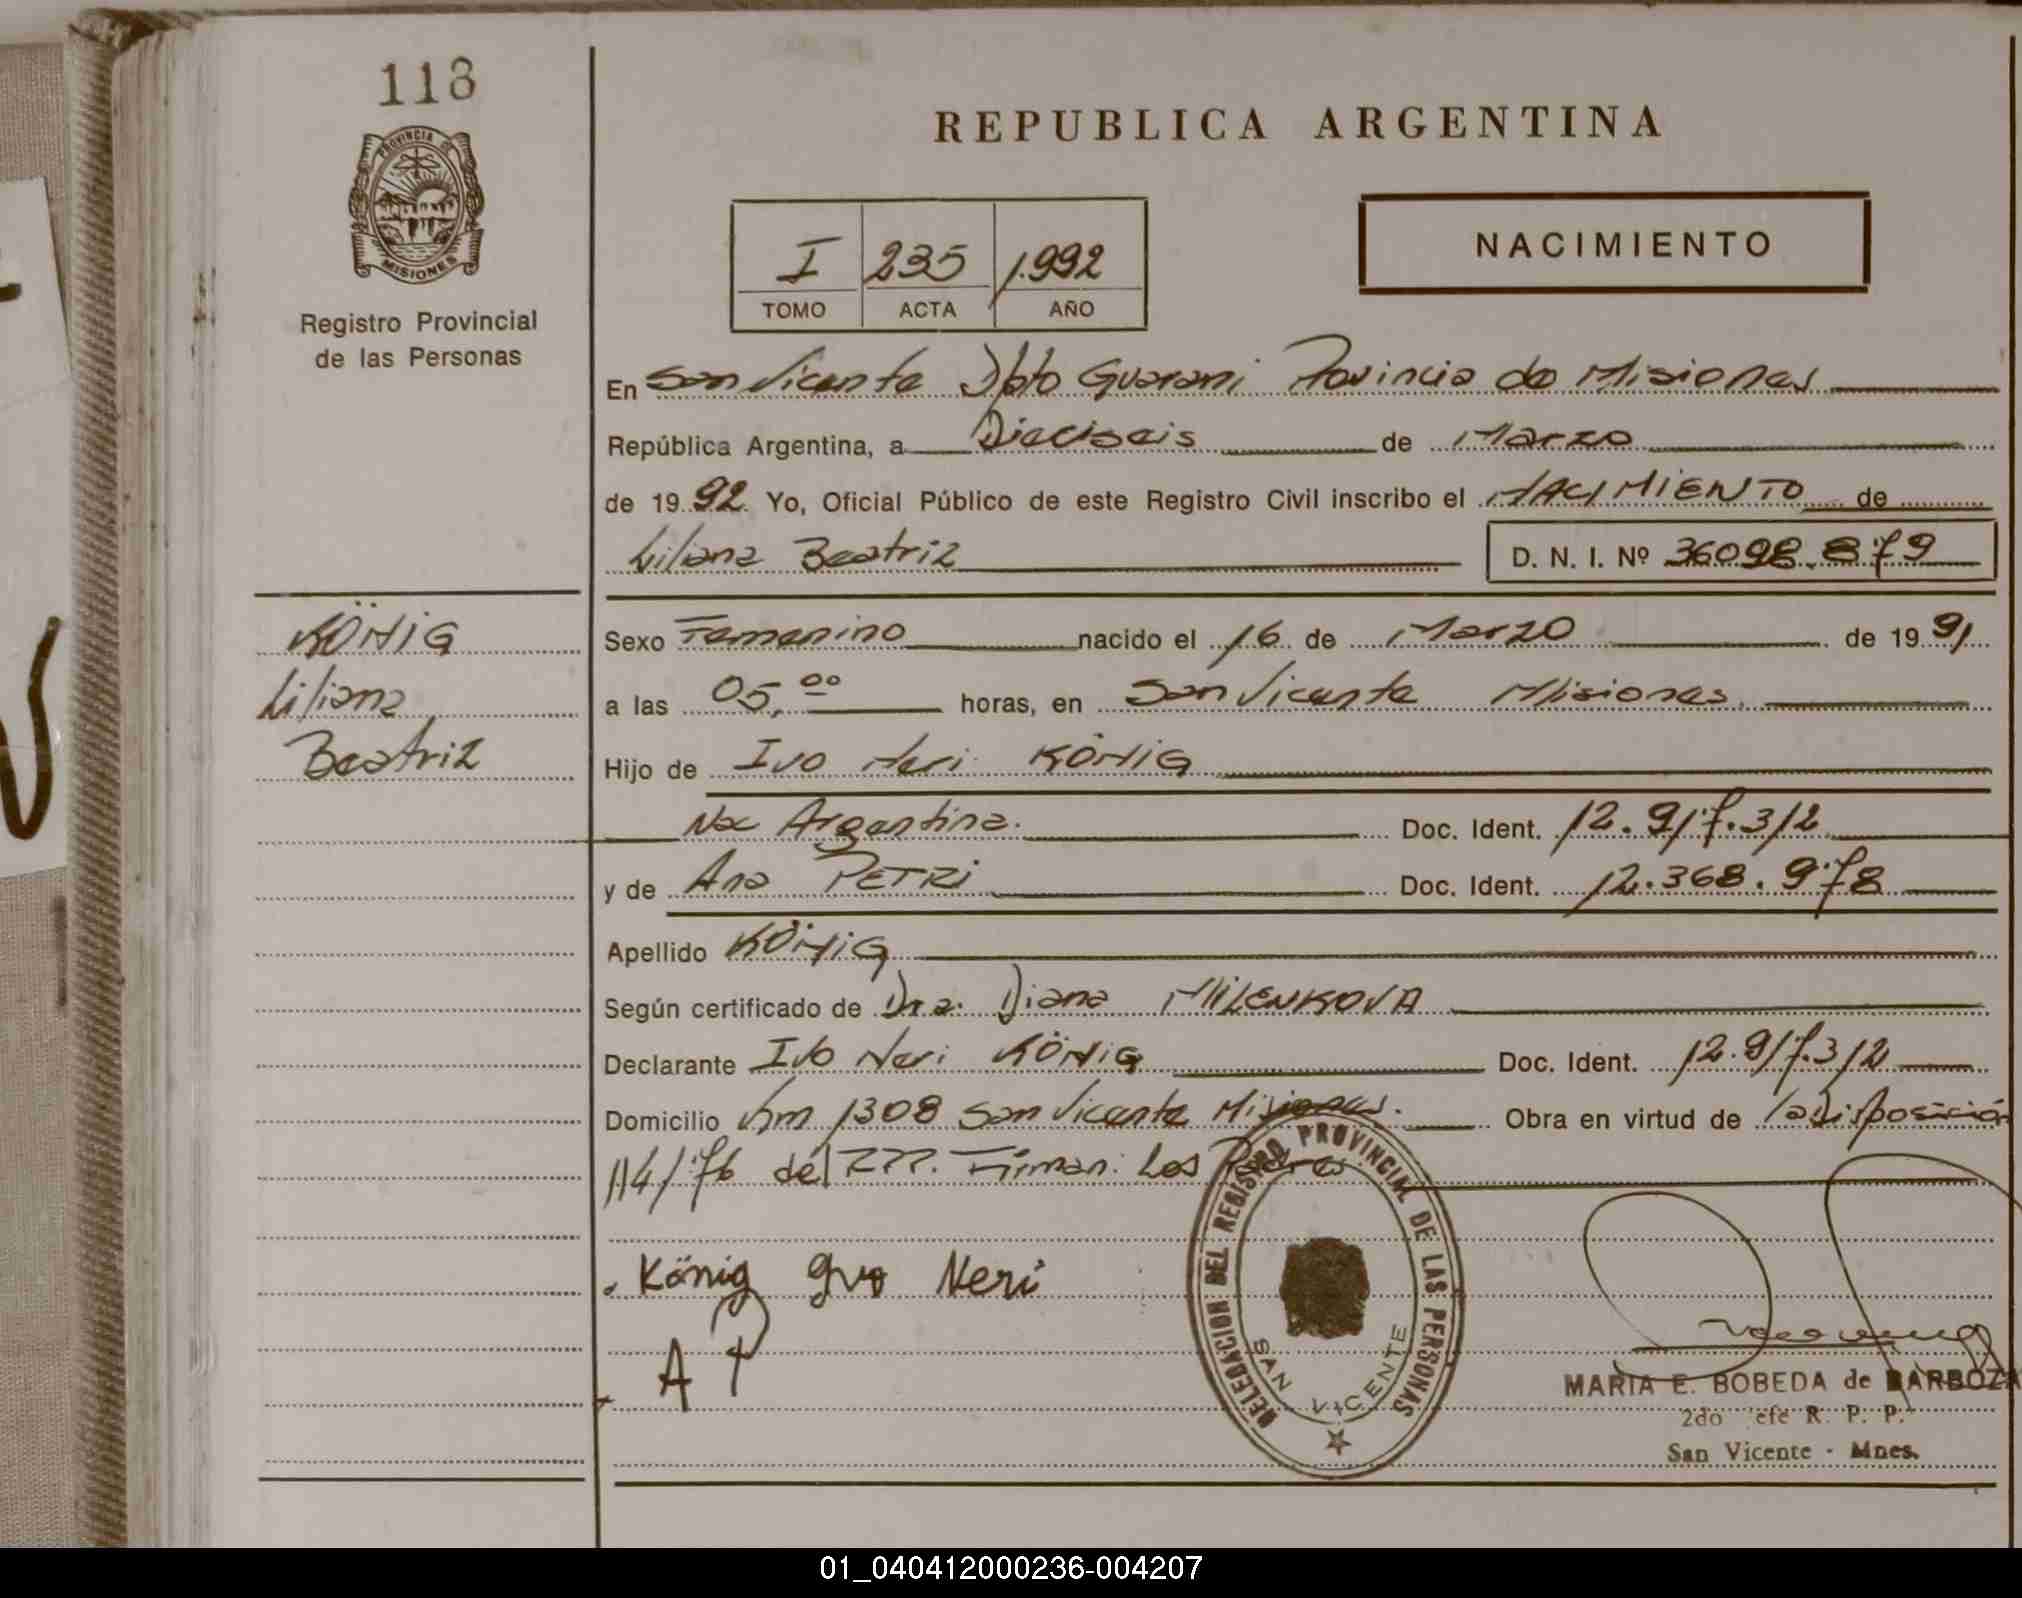 118
PROVINCIA DE
MISIONES
Registro Provincial
de las Personas
REPUBLICA ARGENTINA
I 235 1.992
TOMO ACTA AÑO
NACIMIENTO
En San Vicente Dpto Guarani Provincia de Misiones
República Argentina, a Dieciseis de Marzo
de 19 92 Yo, Oficial Público de este Registro Civil inscribo el NACIMIENTO de
Liliana Beatriz D. N. I. Nº 36098.879
KÖNIG
Liliana
Beatriz
Sexo Femenino nacido el 16 de Marzo de 19 91
a las 05,00 horas, en San Vicente Misiones.
Hijo de Ivo Neri KÖNIG
Nac Argentina. Doc. Ident. 12.917.312
y de Ana PETRI Doc. Ident. 12.368.978
Apellido KÖNIG
Según certificado de Dra. Diana MILENKOVA
Declarante Ivo Neri KÖNIG Doc. Ident. 12.917.312
Domicilio Km 1308 San Vicente Misiones. Obra en virtud de la Disposición
114/76 del RPP. Firman: Los Padres
König Ivo Neri
A P
DELEGACION DEL REGISTRO PROVINCIAL DE LAS PERSONAS
SAN VICENTE
MARIA E. BOBEDA de BARBOZA
2do Jefe R. P. P.
San Vicente - Mnes.
01_040412000236-004207